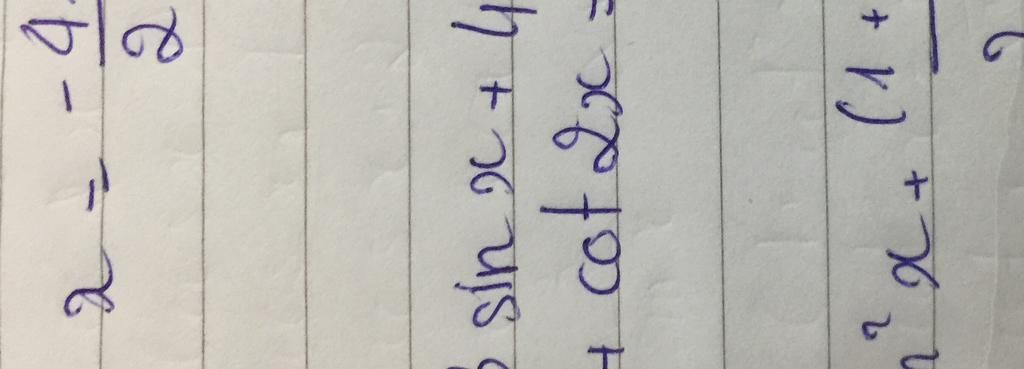 x = - 4
2
sin x + 4
+ cot 2x =
² x + (1 +